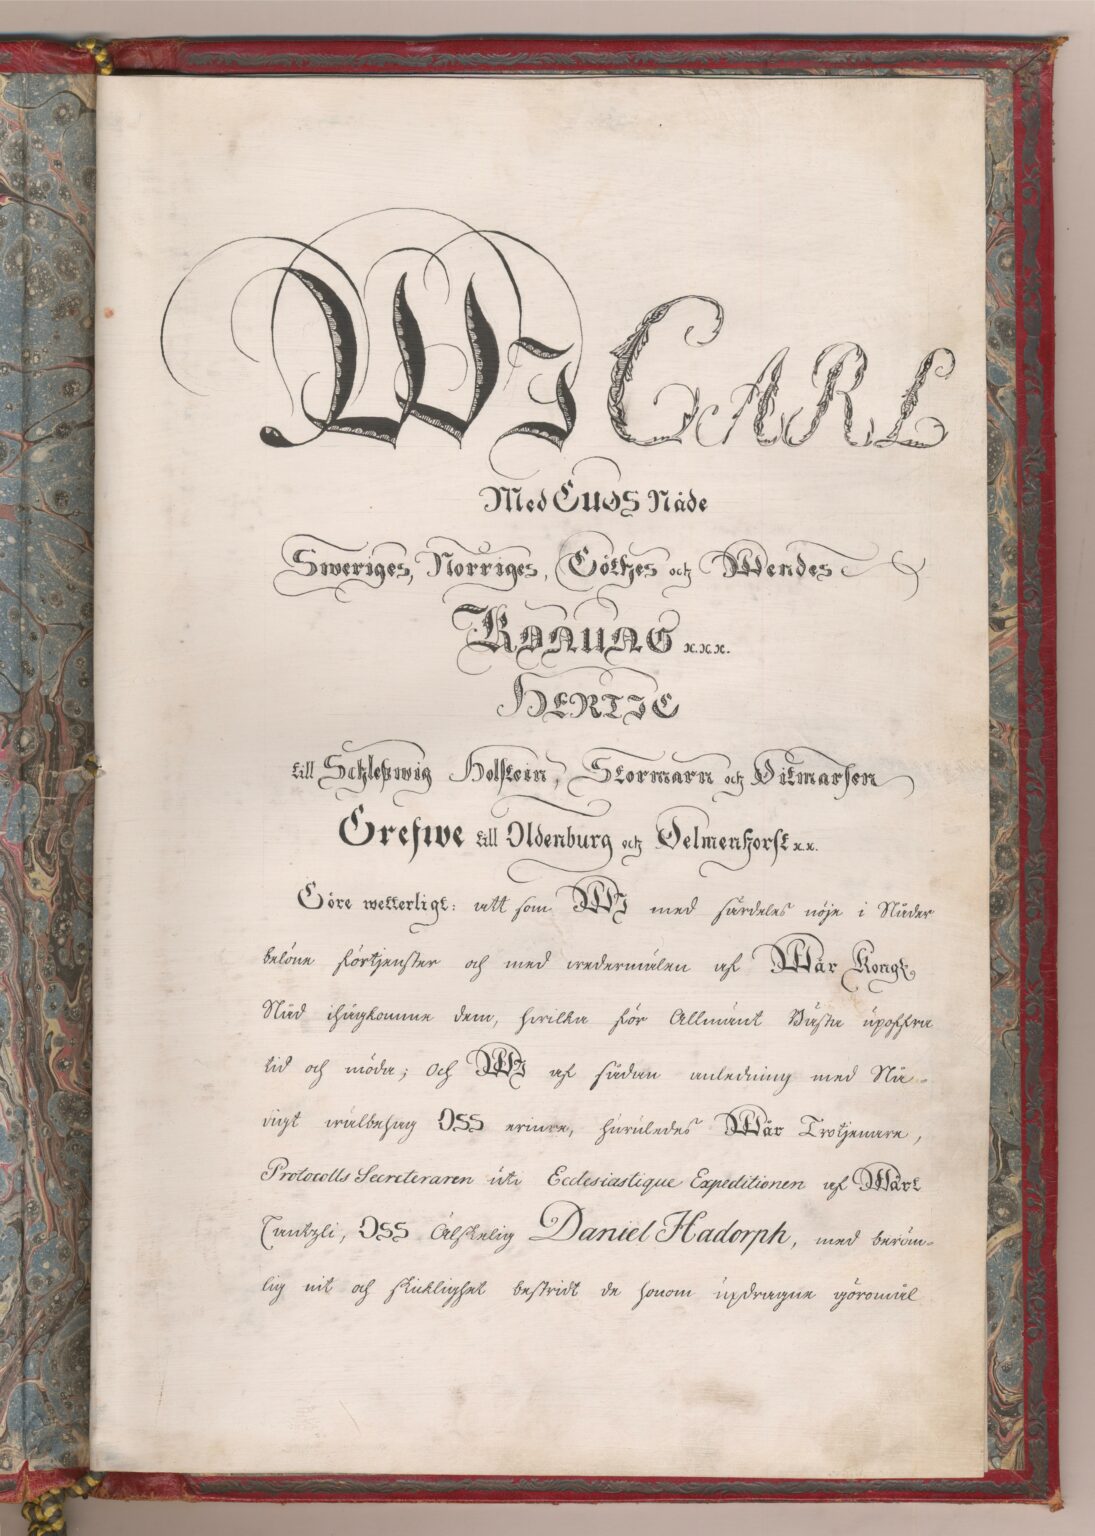 WJ CARL
Med GUDS Nåde
Sweriges, Norriges, Göthes och Wendes
KONUNG x.x.x.
HERTIG
till Schleßwig Holstein, Stormarn och Ditmarsen
Grefwe till Oldenburg och Delmenhorst x.x.
Göre wetterligt: att som WJ med särdeles nöje i Nåder
belöne förtjenster och med wedermälen af Wår Kongl.
Nåd ihågkomme dem, hwilka för Allmänt Bästa upoffra
tid och möda; Och WJ af sådan anledning med Nå-
digt wälbehag OSS erinre, huruledes Wår Trotjenare,
Protocolls Secreteraren uti Ecclesiastique Expeditionen af Wårt
Cantzli, OSS Älskelig Daniel Hadorph, med beröm-
lig nit och skicklighet bestridt de honom updragne göromål